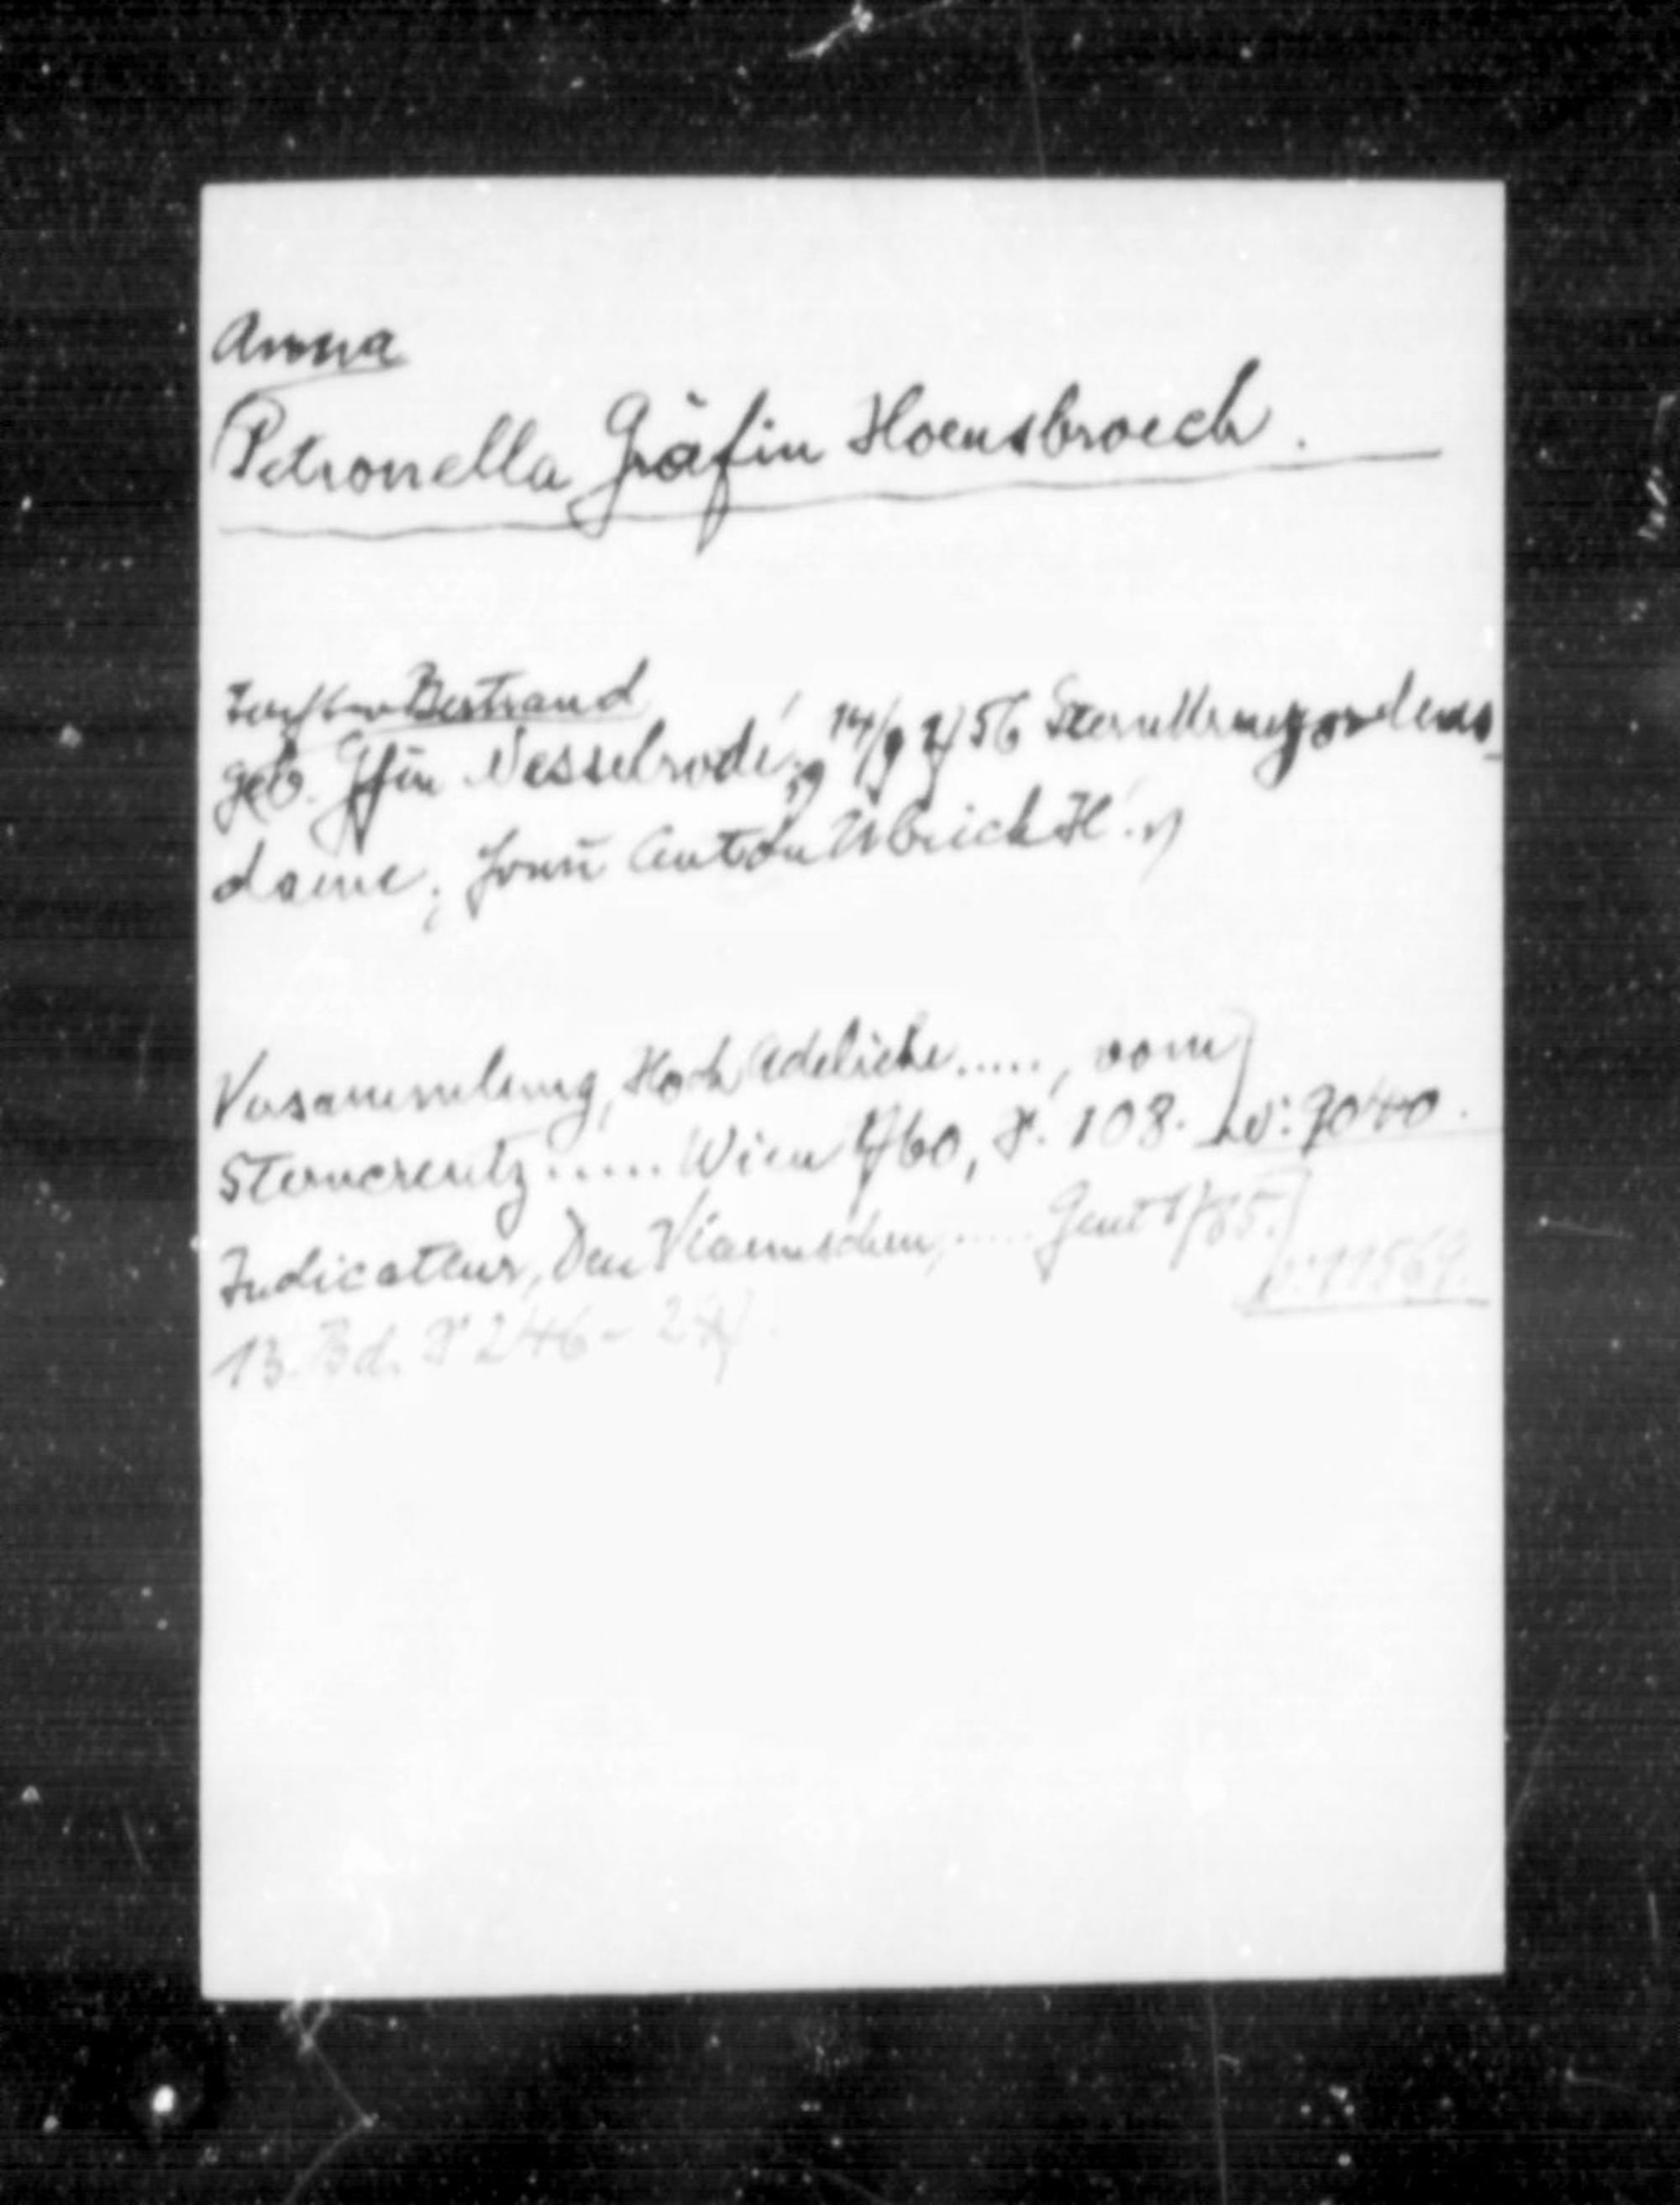 Anna
Petronella Gräfin Hoensbroech.
Tochter Bertrand
geb. Gfin Nesselrode, 14/9 756 Sternkreuzordens-
dame; Anton Ulrich H.
Versammlung, Hoch Adeliche....., vom
Sterncreutz..... Wien 760, S. 108. v: 7040.
Indicateur, Den Vlaemschen,..... Gent 1785.
v: 11569.
13. Bd. S 246-247.